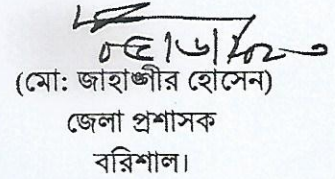 (মো: জাহাঙ্গীর হোসেন)
জেলা প্রশাসক
বরিশাল।